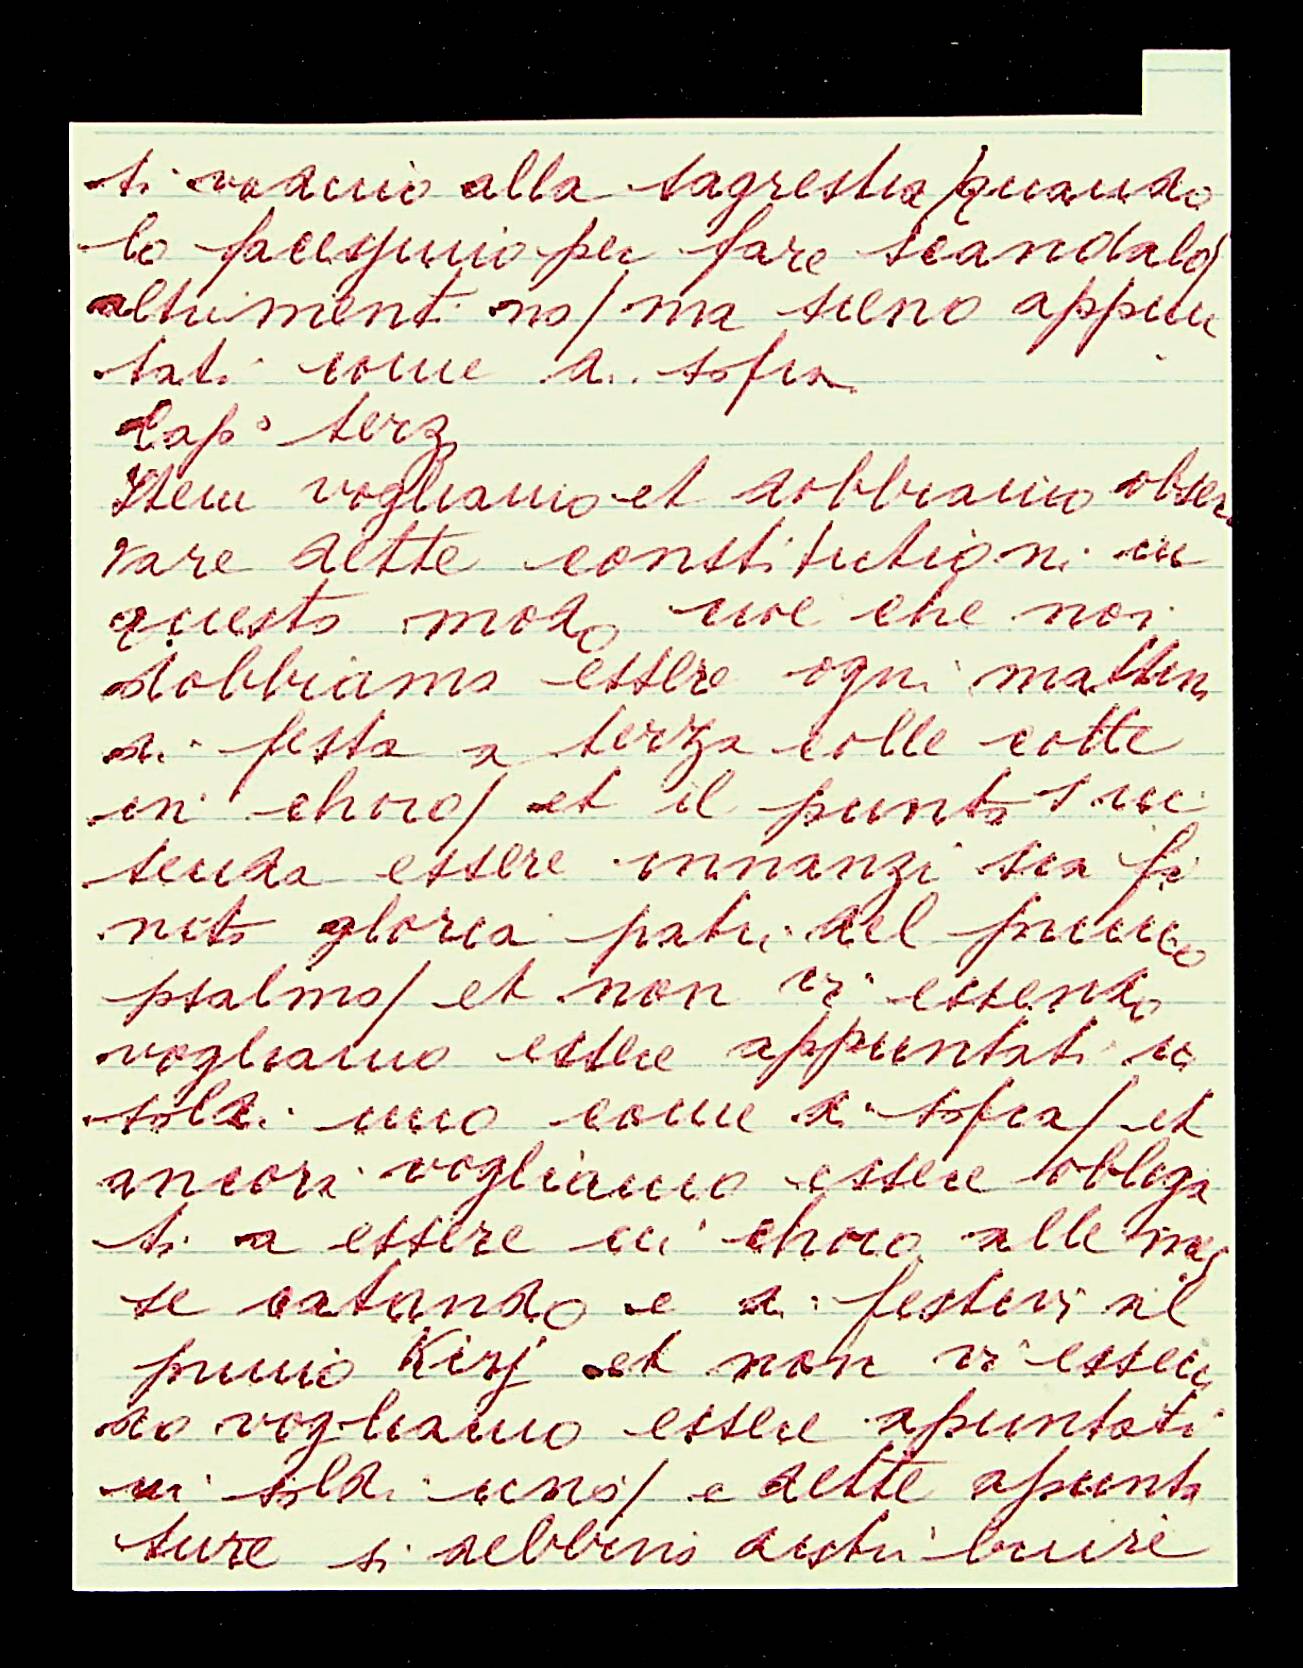 ti vadino alla sagrestia / quando
lo facessino per fare scandalo /
altrimenti no / ma sieno appun
tati come di sopra
Capº terz
Item vogliamo et dobbiamo obser
vare dette constitutioni in
questo modo cioe che noi
dobbiamo essere ogni mattin
di festa a terza colle cotte
in choro / et il punto s in
tenda essere innanzi sia fi
nito gloria patri del primo
psalmo / et non vi essendo
vogliamo essere appuntati in
soldi uno come di sopra / et
ancora vogliamo essere obliga
ti a essere in choro alle mes
se catando e di festivi al
primo Kirj et non vi essen
do vogliamo essere apuntati
in soldi uno / e dette apunta
ture si debbino distribuire